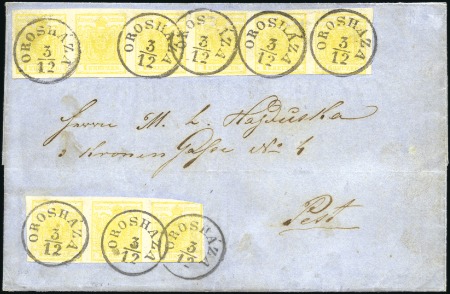 OROSHÁZA 3/12 OROSHÁZA 3/12 OROSHÁZA 3/12 OROSHÁZA 3/12 OROSHÁZA 3/12
Herrn M. L. Hajduska
3 Kronen Gasse No 4
Pest
OROSHÁZA 3/12 OROSHÁZA 3/12 OROSHÁZA 3/12